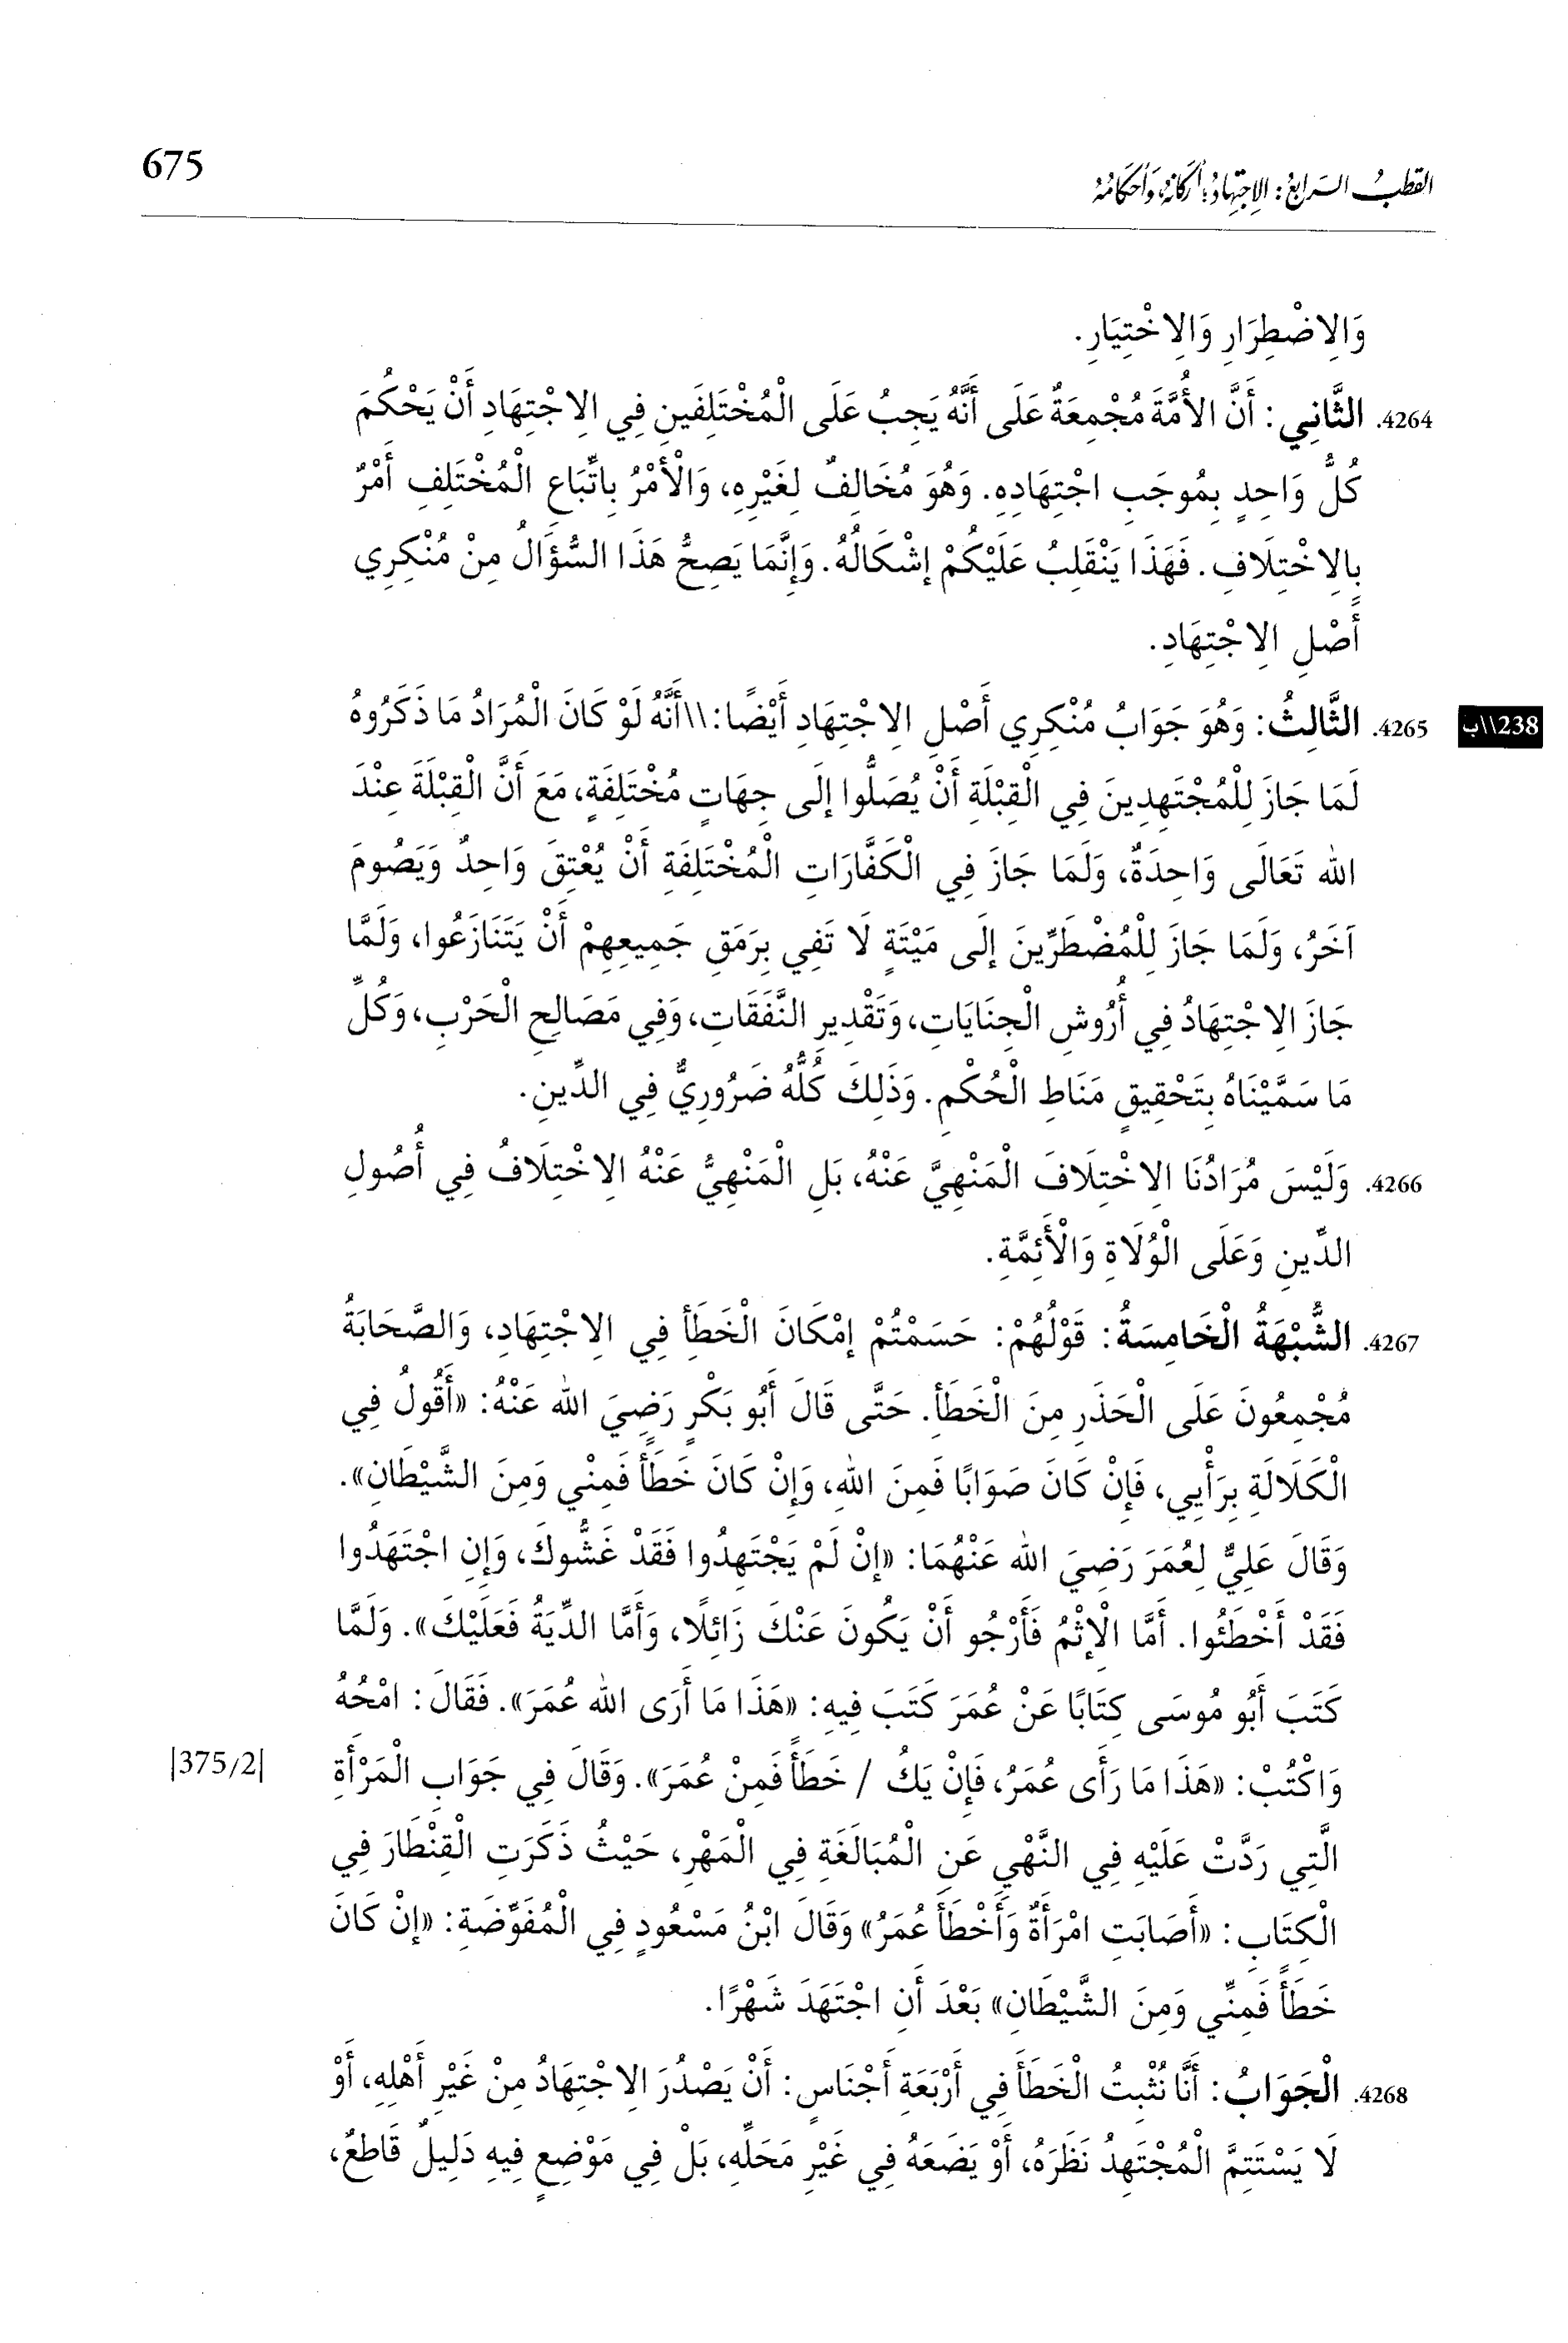 القطبُ الرَّابعُ: الِاجتِهادُ؛ أركانُهُ، وَأحكامُهُ 675
وَالِاضْطِرَارِ وَالِاخْتِيَارِ.
4264. الثَّانِي: أَنَّ الأُمَّةَ مُجْمِعَةٌ عَلَى أَنَّهُ يَجِبُ عَلَى الْمُخْتَلِفَينِ فِي الِاجْتِهَادِ أَنْ يَحْكُمَ
كُلُّ وَاحِدٍ بِمُوجَبِ اجْتِهَادِهِ. وَهُوَ مُخَالِفٌ لِغَيْرِهِ، وَالْأَمْرُ بِاتِّبَاعِ الْمُخْتَلِفِ أَمْرٌ
بِالِاخْتِلَافِ. فَهَذَا يَنْقَلِبُ عَلَيْكُمْ إِشْكَالُهُ. وَإِنَّمَا يَصِحُّ هَذَا السُّؤَالُ مِنْ مُنْكِرِي
أَصْلِ الِاجْتِهَادِ.
4265. الثَّالِثُ: وَهُوَ جَوَابُ مُنْكِرِي أَصْلِ الِاجْتِهَادِ أَيْضًا: \\أَنَّهُ لَوْ كَانَ الْمُرَادُ مَا ذَكَرُوهُ
238\\ب
لَمَا جَازَ لِلْمُجْتَهِدِينَ فِي الْقِبْلَةِ أَنْ يُصَلُّوا إِلَى جِهَاتٍ مُخْتَلِفَةٍ، مَعَ أَنَّ الْقِبْلَةَ عِنْدَ
الله تَعَالَى وَاحِدَةٌ، وَلَمَا جَازَ فِي الْكَفَّارَاتِ الْمُخْتَلِفَةِ أَنْ يُعْتِقَ وَاحِدٌ وَيَصُومَ
آخَرُ، وَلَمَا جَازَ لِلْمُضْطَرِّينَ إِلَى مَيْتَةٍ لَا تَفِي بِرَمَقِ جَمِيعِهِمْ أَنْ يَتَنَازَعُوا، وَلَمَّا
جَازَ الِاجْتِهَادُ فِي أُرُوشِ الْجِنَايَاتِ، وَتَقْدِيرِ النَّفَقَاتِ، وَفِي مَصَالِحِ الْحَرْبِ، وَكُلِّ
مَا سَمَّيْنَاهُ بِتَحْقِيقِ مَنَاطِ الْحُكْمِ. وَذَلِكَ كُلُّهُ ضَرُورِيٌّ فِي الدِّينِ.
4266. وَلَيْسَ مُرَادُنَا الِاخْتِلَافَ الْمَنْهِيَّ عَنْهُ، بَلِ الْمَنْهِيُّ عَنْهُ الِاخْتِلَافُ فِي أُصُولِ
الدِّينِ وَعَلَى الْوُلَاةِ وَالْأَئِمَّةِ.
4267. الشُّبْهَةُ الْخَامِسَةُ: قَوْلُهُمْ: حَسَمْتُمْ إِمْكَانَ الْخَطَأِ فِي الِاجْتِهَادِ، وَالصَّحَابَةُ
مُجْمِعُونَ عَلَى الْحَذَرِ مِنَ الْخَطَأِ. حَتَّى قَالَ أَبُو بَكْرٍ رَضِيَ الله عَنْهُ: «أَقُولُ فِي
الْكَلَالَةِ بِرَأْيِي، فَإِنْ كَانَ صَوَابًا فَمِنَ اللهِ، وَإِنْ كَانَ خَطَأً فَمِنْي وَمِنَ الشَّيْطَانِ».
وَقَالَ عَلِيٌّ لِعُمَرَ رَضِيَ الله عَنْهُمَا: «إِنْ لَمْ يَجْتَهِدُوا فَقَدْ غَشُّوكَ، وَإِنِ اجْتَهَدُوا
فَقَدْ أَخْطَئُوا. أَمَّا الْإِثْمُ فَأَرْجُو أَنْ يَكُونَ عَنْكَ زَائِلًا، وَأَمَّا الدِّيَةُ فَعَلَيْكَ». وَلَمَّا
كَتَبَ أَبُو مُوسَى كِتَابًا عَنْ عُمَرَ كَتَبَ فِيهِ: «هَذَا مَا أَرَى الله عُمَرَ». فَقَالَ: امْحُهُ
وَاكْتُبْ: «هَذَا مَا رَأَى عُمَرُ، فَإِنْ يَكُ / خَطَأً فَمِنْ عُمَرَ». وَقَالَ فِي جَوَابِ الْمَرْأَةِ
|375/2|
الَّتِي رَدَّتْ عَلَيْهِ فِي النَّهْيِ عَنِ الْمُبَالَغَةِ فِي الْمَهْرِ، حَيْثُ ذَكَرَتِ الْقِنْطَارَ فِي
الْكِتَابِ: «أَصَابَتِ امْرَأَةٌ وَأَخْطَأَ عُمَرُ» وَقَالَ ابْنُ مَسْعُودٍ فِي الْمُفَوِّضَةِ: «إِنْ كَانَ
خَطَأً فَمِنِّي وَمِنَ الشَّيْطَانِ» بَعْدَ أَنِ اجْتَهَدَ شَهْرًا.
4268. الْجَوَابُ: أَنَّا نُثْبِتُ الْخَطَأَ فِي أَرْبَعَةِ أَجْنَاسٍ: أَنْ يَصْدُرَ الِاجْتِهَادُ مِنْ غَيْرِ أَهْلِهِ، أَوْ
لَا يَسْتَتِمَّ الْمُجْتَهِدُ نَظَرَهُ، أَوْ يَضَعَهُ فِي غَيْرِ مَحَلِّهِ، بَلْ فِي مَوْضِعٍ فِيهِ دَلِيلٌ قَاطِعٌ،